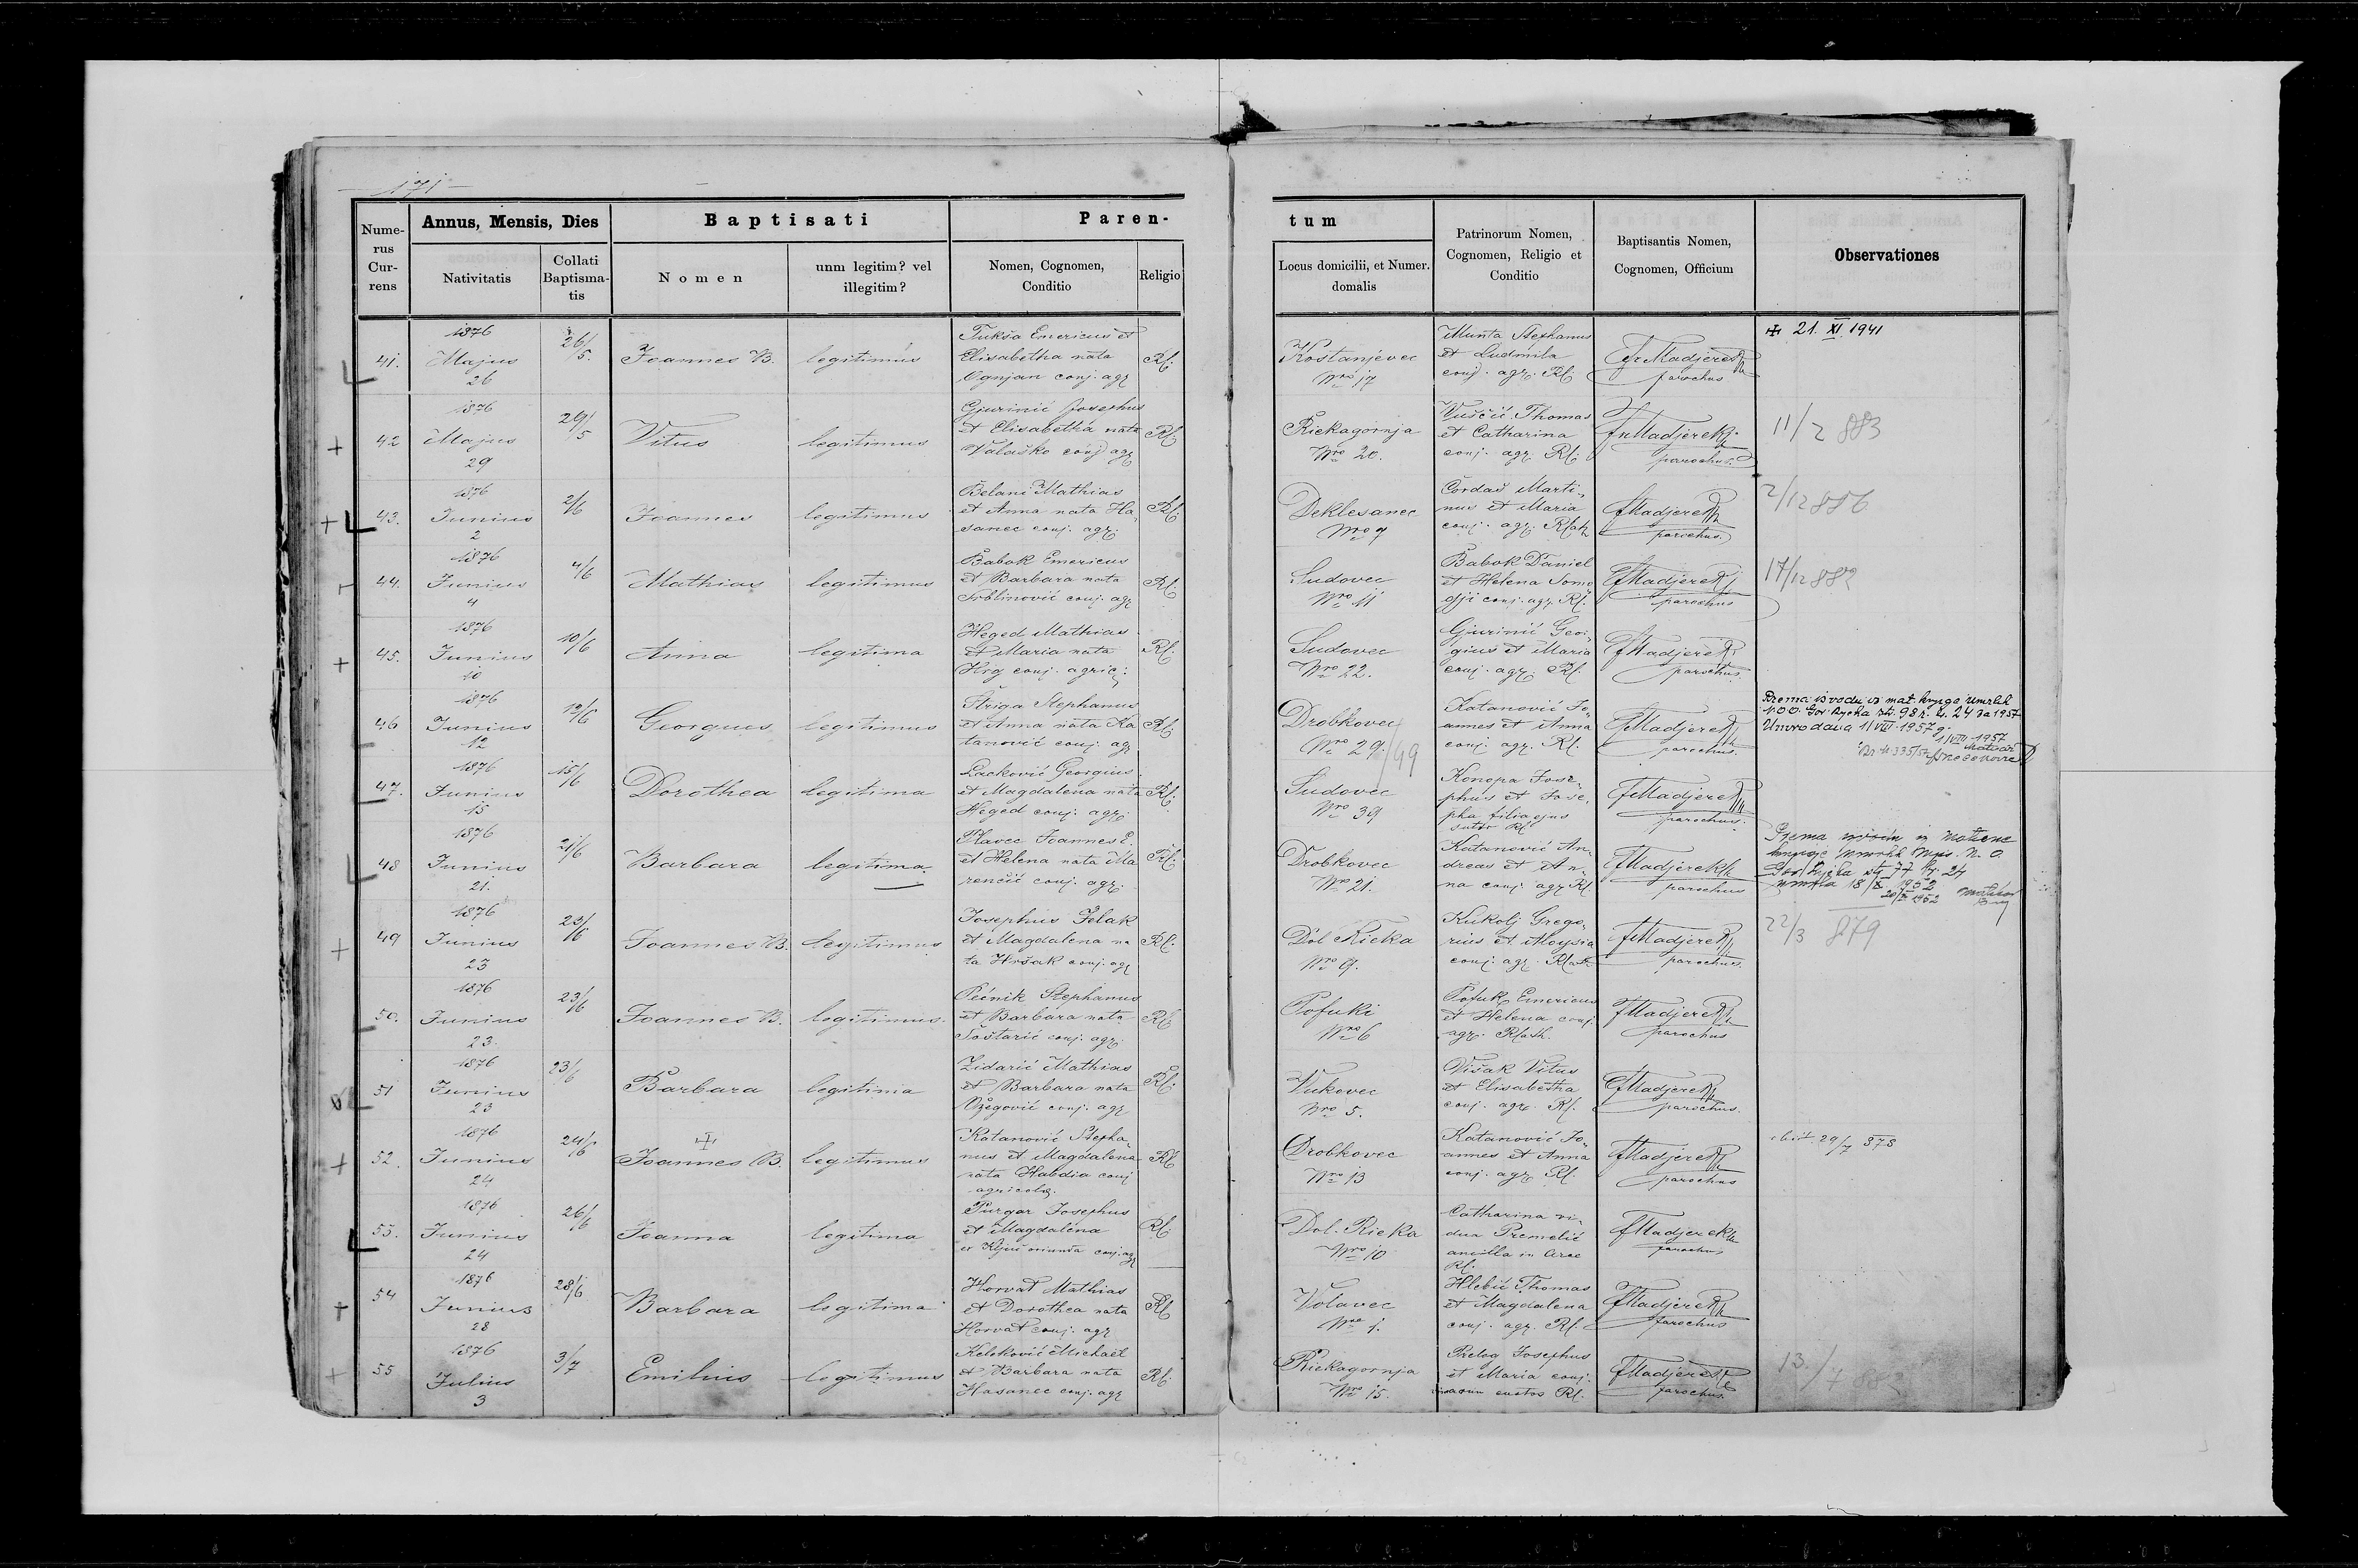 171
Nume-
rus
Cur-
rens
Annus, Mensis, Dies
Nativitatis
Collati
Baptisma-
tis
Baptisati
Nomen
unm legitim? vel
illegitim?
Paren-
Nomen, Cognomen,
Conditio
Religio
tum
Locus domicilii, et Numer.
domalis
Patrinorum Nomen,
Cognomen, Religio et
Conditio
Baptisantis Nomen,
Cognomen, Officium
Observationes
41.
1876
Majus
26
26/5
Joannes B.
legitimus
Tukša Emericus et
Elisabetha nata
Ognjan conj. agr
Rk.
Kostanjevec
Nro 17
Munta Stephanus
et Ludmila
conj. agr. Rk
Madjerek
parochus
21. XI. 1941
42
1876
Majus
29
29/5
Vitus
legitimus
Gjurinić Josephus
et Elisabetha nata
Valaško conj agr
Rk
Riekagornja
Nro 20.
Vuščić Thomas
et Catharina
conj. agr. Rk.
Madjerek
parochus.
11/2 883
43.
1876
Junius
2
2/6
Joannes
legitimus
Belani Mathias
et Anna nata Ha
sanec conj. agr.
Rk.
Deklesanec
Nro 7
Čordaš Marti-
nus et Maria
conj. agr. Rkath
Madjerek
parochus.
2/12 886
44.
1876
Junius
4
4/6
Mathias
legitimus
Babok Emericus
et Barbara nata
conj. agr
Rk.
Sudovec
Nro 11
Babok Daniel
et Helena Somo
gji conj. agr. Rk.
Madjerek
parochus
17/12 882
45.
1876
Junius
10
10/6
Anna
legitima
Heged Mathias
et Maria nata
Hrg conj. agric.
Rk.
Sudovec
Nro 22.
Gjurinić Geor-
gius et Maria
conj. agr. Rk.
Madjerek
parochus.
46
1876
Junius
12
12/6
Georgius
legitimus
Striga Stephanus
et Anna nata Ka
tanović conj. agr
Rk.
Drobkovec
Nro 29. /49
Katanović Jo-
annes et Anna
conj. agr. Rk.
Madjerek
parochus.
Prema izvodu iz mat. knjige umrlih
N.O.O. Gor. Rijeka str. 98 r. b. 24 za 1957
Umro dana 1/VIII. 1957 g.
1/VIII. 1957
Matičar
47.
1876
Junius
15
15/6
Dorothea
legitima
Lacković Georgius
et Magdalena nata
Heged conj. agr.
Rk.
Sudovec
Nro 39
Konopa Jose-
phus et Jose-
pha filia ejus
sutor Rk
Madjerek
parochus.
48
1876
Junius
21.
21/6
Barbara
legitima.
Plavec Joannes
et Helena nata Ma
renčić conj. agr.
Rk.
Drobkovec
Nro 21.
Katanović An-
dreas et An-
na conj. agr Rk.
Madjerek
parochus
Prema iz matične
knjige umrlih N. O.
Gor. Rijeka str 77 br. 24
umrla 18/X. 1952
49
1876
Junius
23
23/6
Joannes B.
legitimus
Josephus Želak
et Magdalena na
ta Hršak conj. agr
Rk.
Dol Rieka
Nro 9.
Kukolj Grego-
rius et Aloysia
conj. agr. Rkath
Madjerek
parochus.
22/3 879
50.
1876
Junius
23.
23/6
Joannes B.
legitimus.
Pećnik Stephanus
et Barbara nata
Šoštarić conj. agr.
Rk
Pofuki
Nro 6
Pofuk Emericus
et Helena conj.
agr. Rkath.
Madjerek
parochus
51
1876
Junius
23
23/6
Barbara
legitima
Zidarić Mathias
et Barbara nata
Ožegović conj. agr
Rk.
Vukovec
Nro 5.
Višak Vitus
et Elisabetha
conj. agr. Rk.
Madjerek
parochus.
52.
1876
Junius
24
24/6
Joannes B.
legitimus
Katanović Stepha-
nus et Magdalena
nata Habdia conj
agricolæ.
Rk
Drobkovec
Nro 13
Katanović Jo-
annes et Anna
conj. agr. Rk.
Madjerek
parochus
obiit 29/7 878
53.
1876
Junius
24
26/6
Joanna
legitima
Purgar Josephus
et Magdalena
ex Ključ oriunda conj. agr
Rk.
Dol. Rieka
Nro 10
Catharina vi-
dua Premelić
ancilla in Arce
Rk.
Madjerek
parochus
54
1876
Junius
28
28/6
Barbara
legitima
Horvat Mathias
et Dorothea nata
Horvat conj. agr
Rk
Volavec
Nro 1.
Hlebić Thomas
et Magdalena
conj. agr. Rk.
Madjerek
parochus
55
1876
Julius
3
3/7
Emilius
legitimus
Keleković Michael
et Barbara nata
Hasanec conj. agr
Rk.
Riekagornja
Nro 15.
Prelog Josephus
et Maria conj.
custos Rk.
Madjerek
parochus.
13./7 882